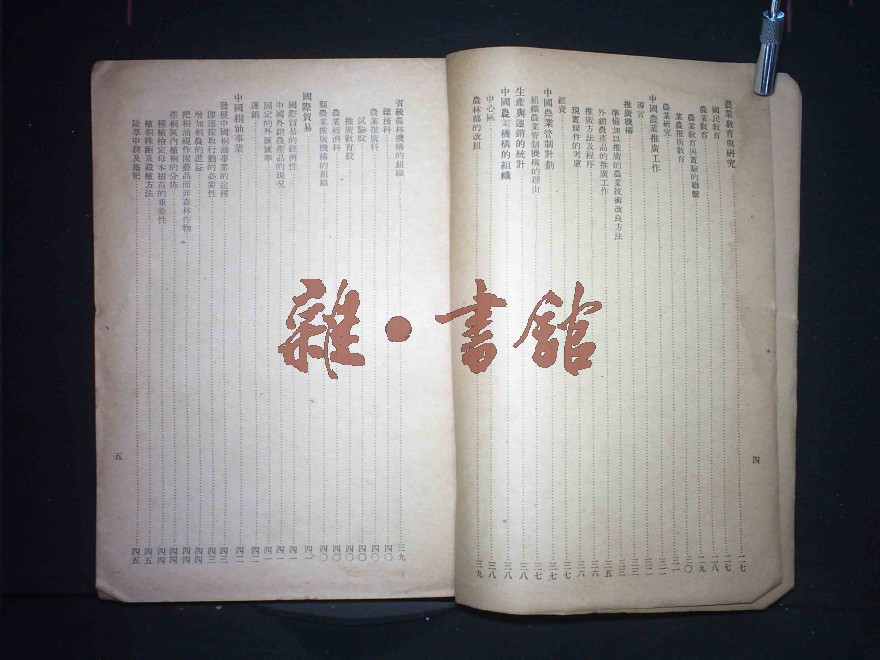 農業教育與研究 二七
國民教育 二七
農業教育 二八
農業教育與實驗的聯繫 二九
業農推廣教育 三〇
農業研究 三一
中國農業推廣工作 三二
導言 三二
推廣機構 三三
準備加以推廣的農業技術改良方法 三三
外銷農產品的推廣工作 三五
推廣方法及程序 三六
現實條件的考慮 三六
經費 三七
中國農業管制計劃 三七
組織農業管制機構的理由 三七
生產與運銷的統計 三八
中國農業機構的組織 三八
中心區 三八
農林部的改組 三九
四
省級農林機構的組織 三九
總務科 四〇
農業推廣科 四〇
試驗股 四〇
推廣教育股 四〇
農業經濟科 四〇
縣農業推廣機構的組織 四〇
國際貿易 四一
國際貿易的經濟性 四一
中國外銷農產品的現況 四一
固定的外匯匯率 四一
運銷 四二
中國桐油事業 四二
發展中國桐油事業的途徑 四三
即速採取行動的必要性 四三
增加桐農的收益 四四
把桐油視作園藝品而非森林作物 四四
產桐區內植桐的分佈 四四
種植檢定母本桐苗的重要性 四四
植桐株距及栽植方法 四五
除草中耕及施肥 四五
五
雜·書館